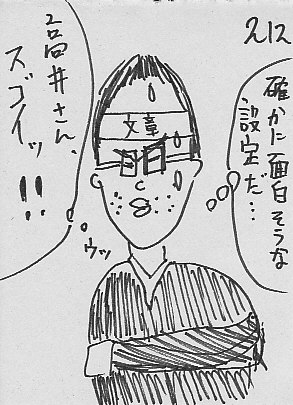 212
確かに面白そうな
設定だ…
文章
高井さん、
スゴイッ!!
ウッ